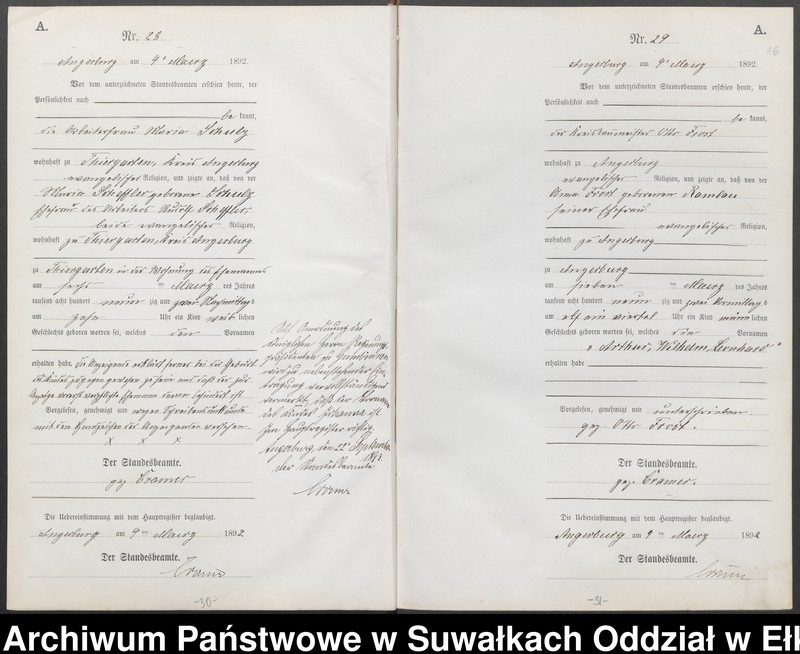 A.
Nr. 28
Angerburg am 9ten Maerz 1892.
Vor dem unterzeichneten Standesbeamten erschien heute, der
Persönlichkeit nach
be kannt,
die Arbeiterfrau Maria Schulz
wohnhaft zu Thiergarten, Kreis Angerburg
evangelischer Religion, und zeigte an, daß von der
Maria Scheffler geborene Schulz
Ehefrau des Arbeiters Scheffler,
beide evangelischer Religion,
wohnhaft zu Thiergarten, Kreis Angerburg
zu Thiergarten in der Wohnung des Ehemannes
am sechs ten Maerz des Jahres
tausend acht hundert neun zig und zwei Nachmittags
um zehn Uhr ein Kind weib lichen
Geschlechts geboren worden sei, welches den Vornamen
erhalten habe. Die Anzeigende erklärt ferner bei der Geburt
des Kindes zugegen gewesen zu sein und daß der zur
Anzeige verpflichtete Ehemann
Vorgelesen, genehmigt und wegen Schreibensunkunde
mit dem Handzeichen der Anzeigenden versehen
x x x
Der Standesbeamte.
gez. Cramer
Die Uebereinstimmung mit dem Hauptregister beglaubigt.
Angerburg am 9ten Maerz 1892
Der Standesbeamte.
Cramer
-30-
Auf Anordnung des
Königlichen Herrn Regierungs
präsidenten zu Gumbinnen
wird zu nebenstehender Ein
tragung vervollständigend
vermerkt, daß der Vorname
des Kindes Johanna ist
Im Hauptregister
Angerburg, den 22 September
1893
Der Standesbeamte
Cramer
A.
16
Nr. 29
Angerburg am 9ten Maerz 1892.
Vor dem unterzeichneten Standesbeamten erschien heute, der
Persönlichkeit nach
be kannt,
der Kreisbaumeister Otto Frost
wohnhaft zu Angerburg
evangelischer Religion, und zeigte an, daß von der
Anna Frost geborenen Rambau
seiner Ehefrau
evangelischer Religion,
wohnhaft zu Angerburg
zu Angerburg
am sieben ten Maerz des Jahres
tausend acht hundert neun zig und zwei Vormittags
um elf ein viertel Uhr ein Kind männ lichen
Geschlechts geboren worden sei, welches die Vornamen
„Arthur, Wilhelm, Leonhard“
erhalten habe
Vorgelesen, genehmigt und unterschrieben
gez. Otto Frost.
Der Standesbeamte.
gez. Cramer.
Die Uebereinstimmung mit dem Hauptregister beglaubigt.
Angerburg am 9ten Maerz 1892
Der Standesbeamte.
Cramer
-31-
Archiwum Państwowe w Suwałkach Oddział w Ełk